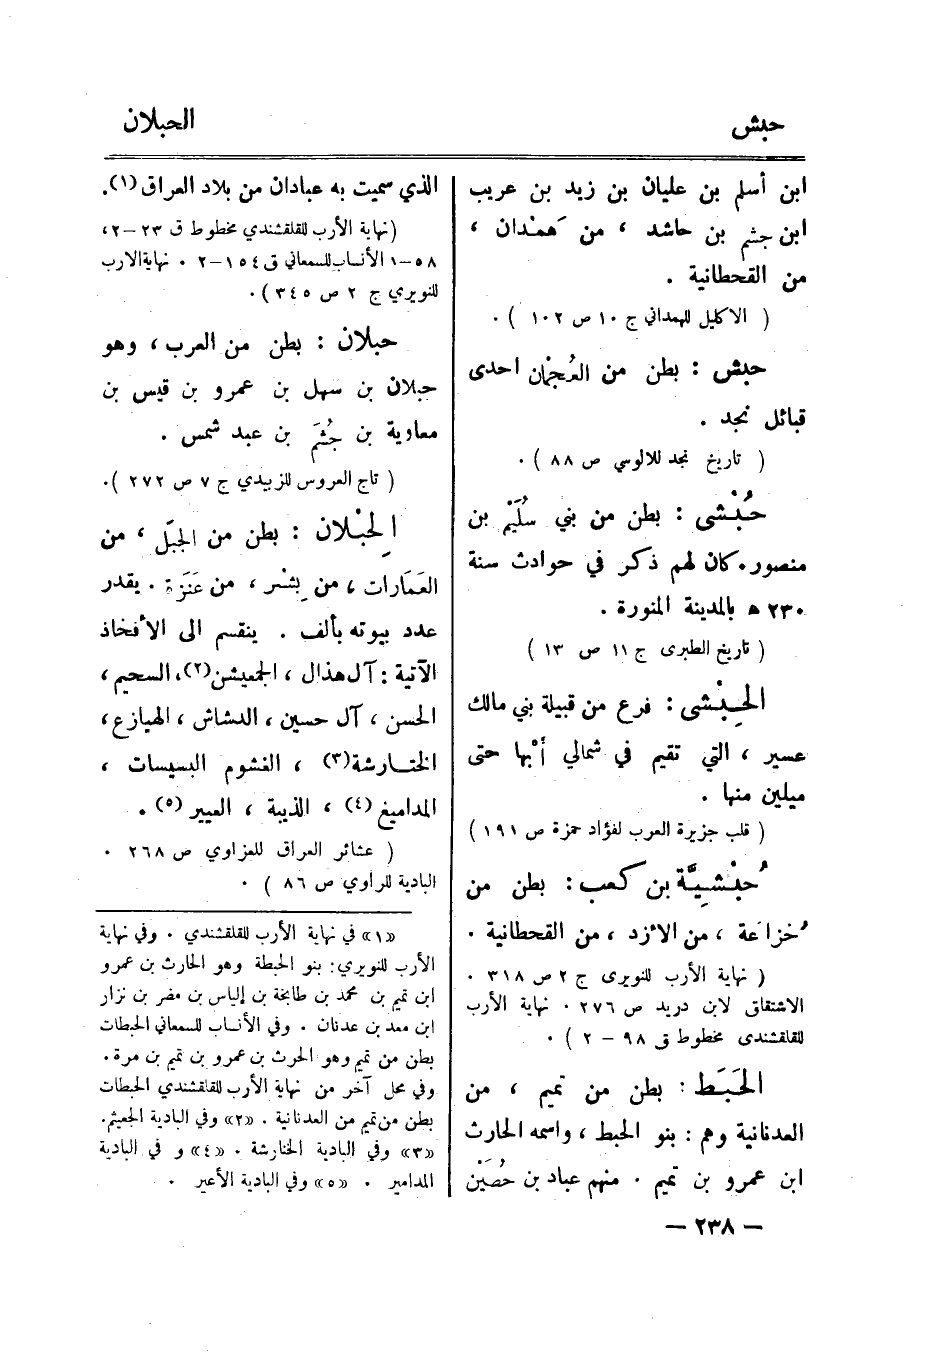 حبش
الحبلان
ابن أسلم بن عليان بن زيد بن عريب
ابن جشم بن حاشد ، من هَمْدان ،
من القحطانية .
( الاكليل للهمداني ج ١٠ ص ١٠٢ ) .
حبش : بطن من العُجْمان احدى
قبائل نجد .
( تاريخ نجد للالوسي ص ٨٨ ) .
حُبْشى : بطن من بني سُلَيْم بن
منصور . كان لهم ذكر في حوادث سنة
٢٣٠ ه بالمدينة المنورة .
( تاريخ الطبرى ج ١١ ص ١٣ )
الحِبْشى : فرع من قبيلة بني مالك
عسير ، التي تقيم في شمالي أبْها حتى
ميلين منها .
( قلب جزيرة العرب لفؤاد حمزة ص ١٩١ )
حُبْشِيَّة بن كعب : بطن من
خُزاعة ، من الأزد ، من القحطانية .
( نهاية الأرب للنويرى ج ٢ ص ٣١٨ .
الاشتقاق لابن دريد ص ٢٧٦ . نهاية الأرب
للقلقشندى مخطوط ق ٩٨ - ٢ ) .
الحَبَط : بطن من تميم ، من
العدنانية وهم : بنو الحبط ، واسمه الحارث
ابن عمرو بن تميم . منهم عباد بن حُصَيْن
الذي سميت به عبادان من بلاد العراق (١) .
( نهاية الأرب للقلقشندي مخطوط ق ٢٣ - ٢ ،
٥٨ - ١ الأنساب للسمعاني ق ١٥٤ - ٢ . نهاية الارب
للنويري ج ٢ ص ٣٤٥ ) .
حبلان : بطن من العرب ، وهو
حبلان بن سهل بن عمرو بن قيس بن
معاوية بن جُشَم بن عبد شمس .
( تاج العروس للزبيدي ج ٧ ص ٢٧٢ ) .
الحِبْلان : بطن من الجبَل ، من
العَمَارات ، من بِشْر ، من عَنَزة . يقدر
عدد بيوته بألف . ينقسم الى الأفخاذ
الآتية : آل هذال ، الجعيشن (٢) ، السحيم ،
الحسن ، آل حسين ، الدشاش ، الهيازع ،
الختارشة (٣) ، الغشوم البسيسات ،
المداميغ (٤) ، الذيبة ، العيير (٥) .
( عشائر العراق للعزاوي ص ٢٦٨ .
البادية للراوي ص ٨٦ ) .
«١» في نهاية الأرب للقلقشندي . وفي نهاية
الأرب للنويري : بنو الحبطة وهو الحارث بن عمرو
ابن تميم بن محمد بن طابخة بن إلياس بن مضر بن نزار
ابن معد بن عدنان . وفي الأنساب للسمعاني الحبطات
بطن من تميم وهو الحرث بن عمرو بن تميم بن مرة .
وفي محل آخر من نهاية الأرب للقلقشندي الحبطات
بطن من تميم من العدنانية . «٢» وفي البادية الجعيثم .
«٣» وفي البادية الخنارشة . «٤» و في البادية
المدامير . «٥» وفي البادية الأعير .
— ٢٣٨ —